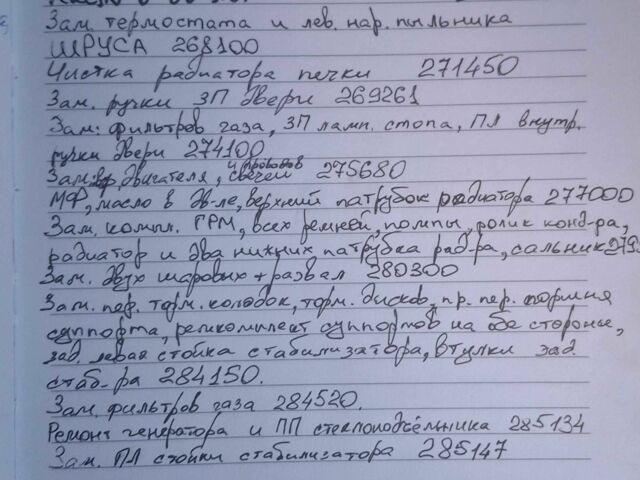 Зам. термостата и лев. нар. пыльника
ШРУСА 268100
Чистка радиатора печки 271450
Зам. ручки ЗП двери 269261
Зам. фильтров газа, ЗП ламп. стопа, ПЛ внутр.
ручки двери 274100
Зам. двигателя, свечей и проводов 275680
МФ, масло в дв-ле, верхний патрубок радиатора 277000
Зам. компл. ГРМ, всех ремней, помпы, ролик конд-ра,
радиатор и два нижних патрубка рад-ра, сальник 279
Зам. двух шаровых + развал 280300
Зам. пер. торм. колодок, торм. дисков, пр. пер. поршня
суппорта, ремкомплект суппортов на обе стороны,
зад. левая стойка стабилизатора, втулки зад.
стаб-ра 284150.
Зам. фильтров газа 284520.
Ремонт генератора и ПП стеклоподъёмника 285134
Зам. ПЛ стойки стабилизатора 285147